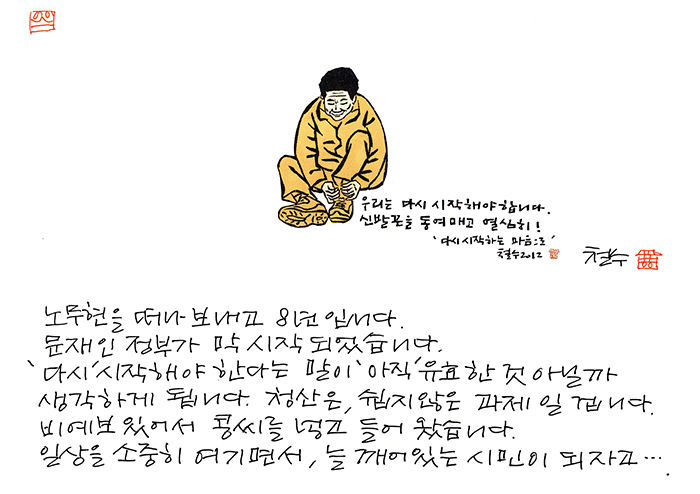 우리는 다시 시작해야 합니다.
신발끈을 동여매고 열심히!
'다시 시작하는 마음으로'
철수2012
철수
노무현을 떠나 보내고 8년입니다.
문재인 정부가 막 시작되었습니다.
'다시' 시작해야 한다는 말이 '아직' 유효한 것 아닐까
생각하게 됩니다. 청산은, 쉽지않은 과제일겁니다.
비예보 있어서 콩씨를 넣고 들어왔습니다.
일상을 소중히 여기면서, 늘 깨어있는 시민이 되자고….